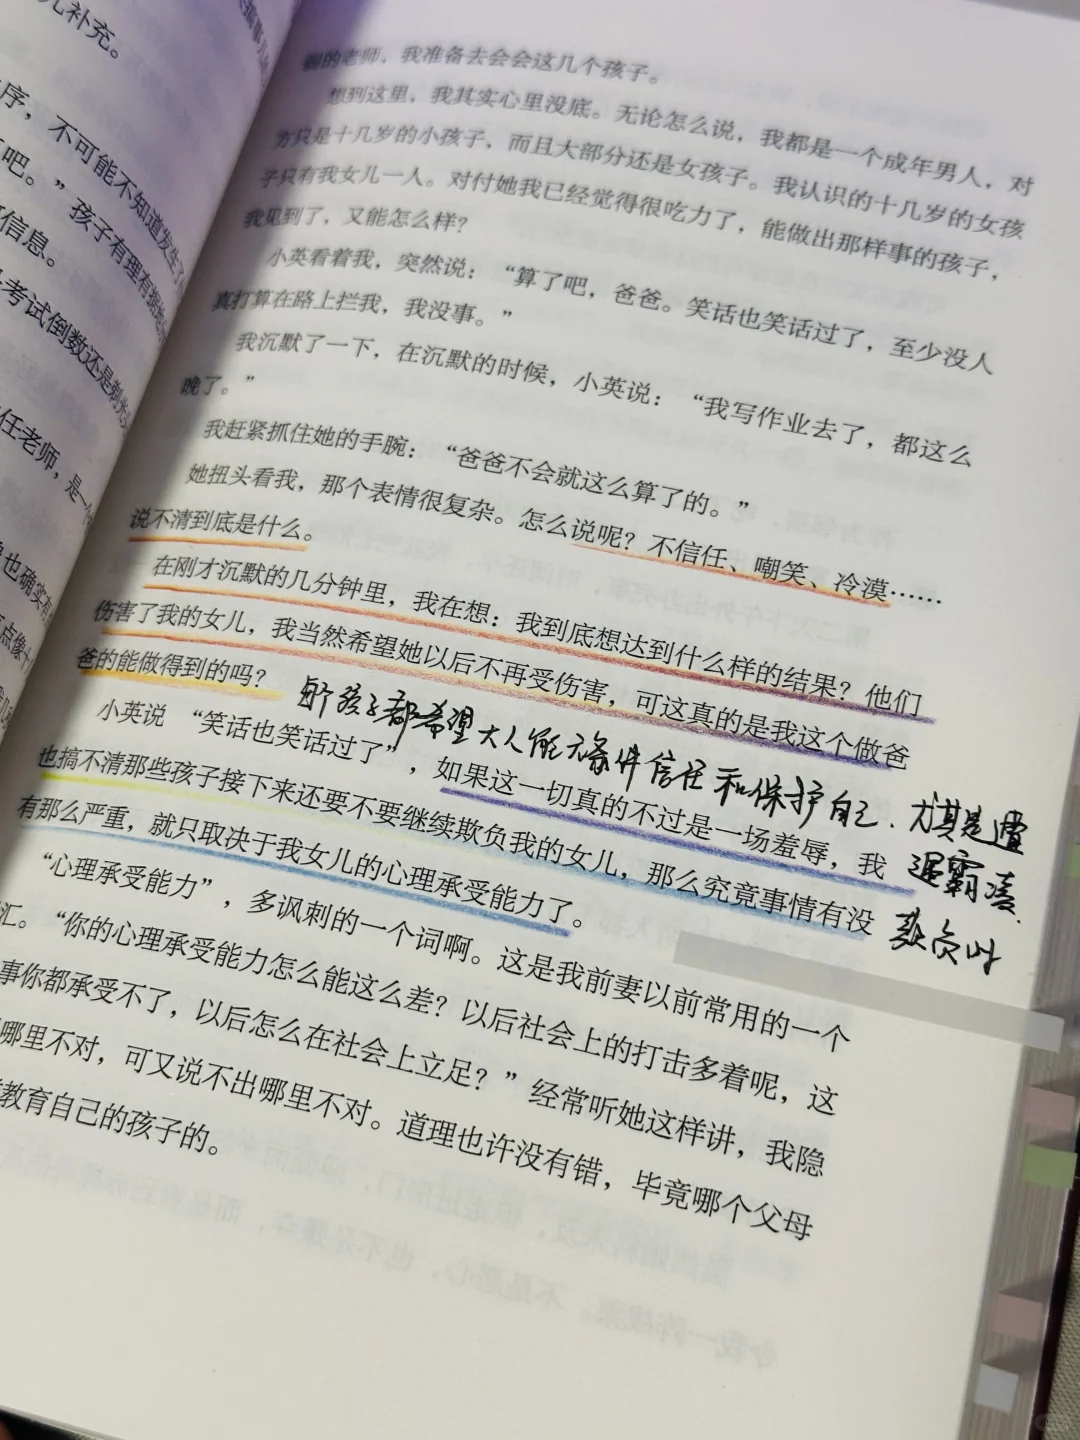 儿补充。
序，不可能不知道发生了
了吧。”孩子有理有据
信息。
考试倒数还是
任老师，是一个
也确实有
的老师，我准备去会会这几个孩子。
想到这里，我其实心里没底。无论怎么说，我都是一个成年男人，对
方只是十几岁的小孩子，而且大部分还是女孩子。我认识的十几岁的女孩
子只有我女儿一人。对付她我已经觉得很吃力了，能做出那样事的孩子，
我见到了，又能怎么样？
小英看着我，突然说：“算了吧，爸爸。笑话也笑话过了，至少没人
真打算在路上拦我，我没事。”
我沉默了一下，在沉默的时候，小英说：“我写作业去了，都这么
晚了。”
我赶紧抓住她的手腕：“爸爸不会就这么算了的。”
她扭头看我，那个表情很复杂。怎么说呢？不信任、嘲笑、冷漠……
说不清到底是什么。
在刚才沉默的几分钟里，我在想：我到底想达到什么样的结果？他们
伤害了我的女儿，我当然希望她以后不再受伤害，可这真的是我这个做爸
爸的能做得到的吗？
所孩子都希望大人能无条件信任和保护自己，尤其是遭
遇霸凌
欺负时
小英说“笑话也笑话过了”，如果这一切真的不过是一场羞辱，我
也搞不清那些孩子接下来还要不要继续欺负我的女儿，那么究竟事情有没
有那么严重，就只取决于我女儿的心理承受能力了。
“心理承受能力”，多讽刺的一个词啊。这是我前妻以前常用的一个
汇。“你的心理承受能力怎么能这么差？以后社会上的打击多着呢，这
事你都承受不了，以后怎么在社会上立足？”经常听她这样讲，我隐
哪里不对，可又说不出哪里不对。道理也许没有错，毕竟哪个父母
教育自己的孩子的。